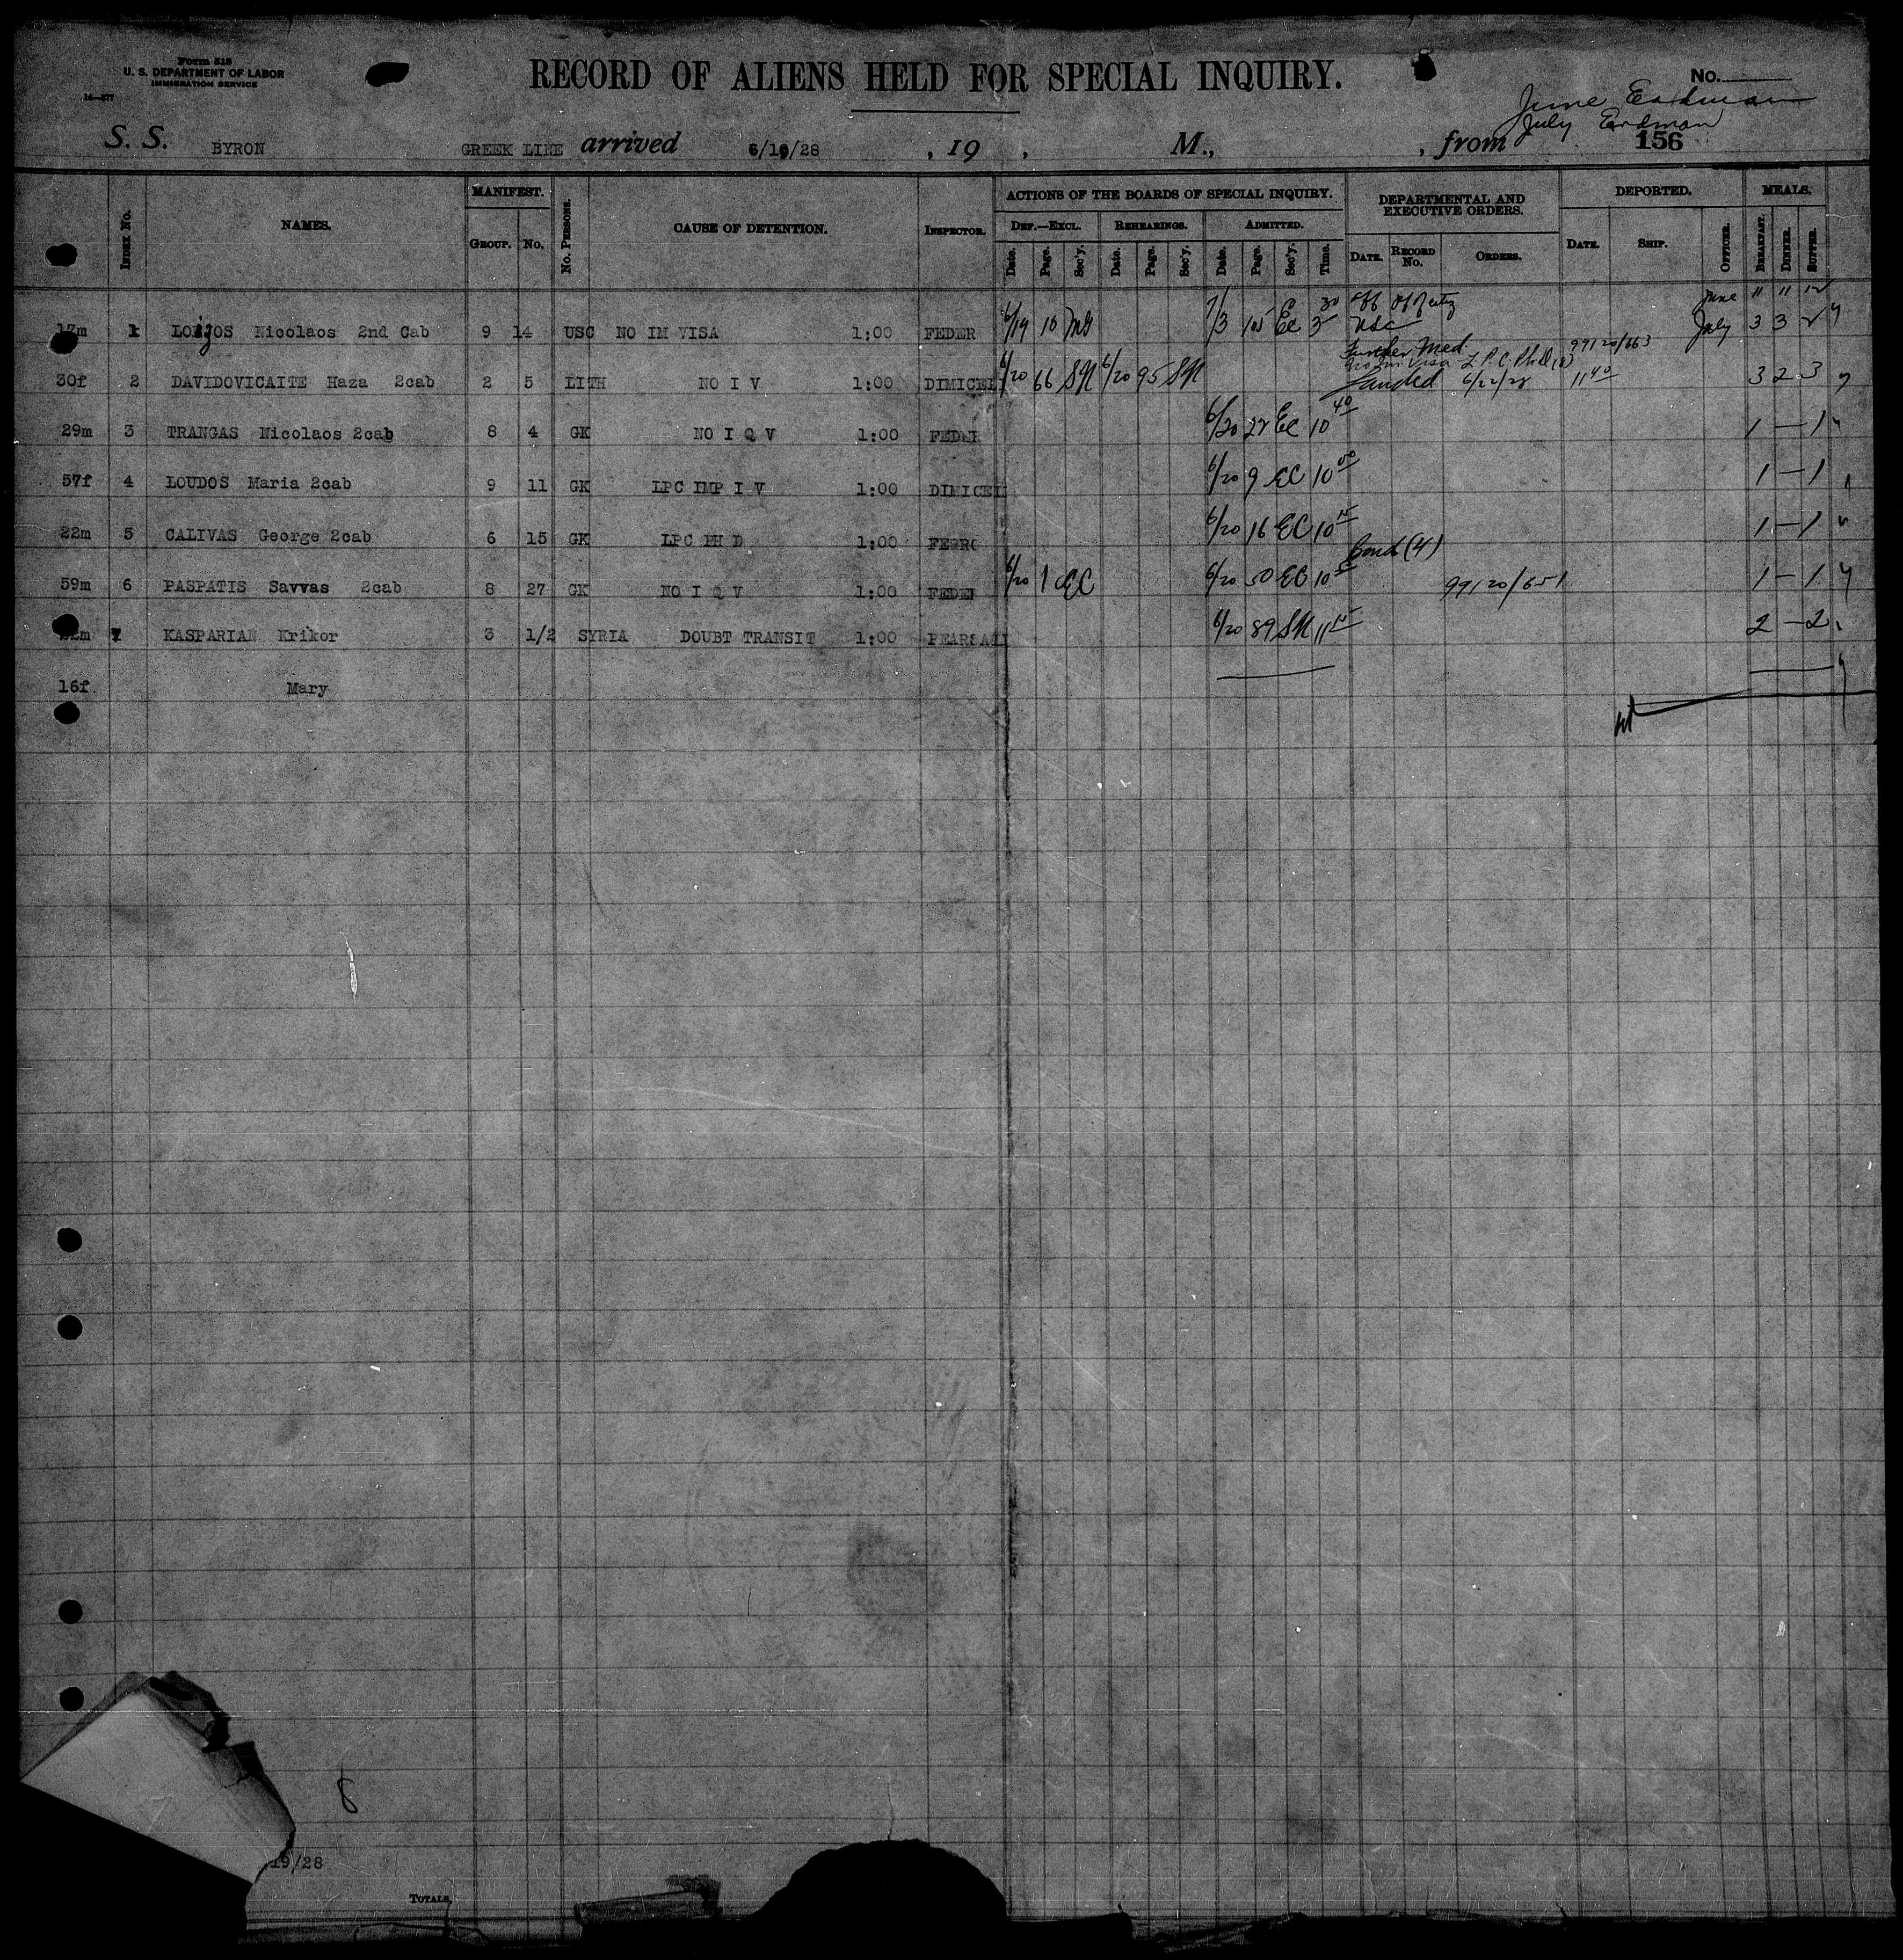 Form 518
U. S. DEPARTMENT OF LABOR
IMMIGRATION SERVICE
RECORD OF ALIENS HELD FOR SPECIAL INQUIRY.
No.
June Erdman
July Erdman
S. S. BYRON GREEK LINE arrived 6/19/28 , 19 , M., , from 156
INDEX No. NAMES. MANIFEST. GROUP. NO. No. PERSONS. CAUSE OF DETENTION. INSPECTOR. ACTIONS OF THE BOARDS OF SPECIAL INQUIRY. DEF.—EXCL. REHEARINGS. ADMITTED. DEPARTMENTAL AND EXECUTIVE ORDERS. DEPORTED. MEALS.
Date. Page. Sec'y. Date. Page. Sec'y. Date. Page. Sec'y. Time. DATE. RECORD No. ORDERS. DATE. SHIP. OFFICER. BREAKFAST. DINNER. SUPPER.
June " " 12
17m 1 LOIJOS Nicolaos 2nd Cab 9 14 USC NO IM VISA 1:00 FEDER 6/19 10 MG 7/3 105 EC 3 30 USC July 3 3 2
Further Med 99120/663
30f 2 DAVIDOVICAITE Haza 2cab 2 5 LITH NO I V 1:00 DIMICEL 6/20 66 SM 6/20 95 SM Landed 6/22/28 11 40 3 2 3
29m 3 TRANGAS Nicolaos 2cab 8 4 GK NO I Q V 1:00 FEDER 6/20 22 EC 10 40 1 — 1
57f 4 LOUDOS Maria 2cab 9 11 GK LPC IMP I V 1:00 DIMICEL 6/20 9 EC 10 00 1 — 1
22m 5 CALIVAS George 2cab 6 15 GK LPC PH D 1:00 FERRO 6/20 16 EC 10 15 1 — 1
Bond (4)
59m 6 PASPATIS Savvas 2cab 8 27 GK NO I Q V 1:00 FEDER 6/20 1 EC 6/20 50 EC 10 99120/651 1 — 1
2m 7 KASPARIAN Krikor 3 1/2 SYRIA DOUBT TRANSIT 1:00 PEARSALL 6/20 89 SM 11 15 2 — 2
16f Mary
8
19/28
TOTALS,